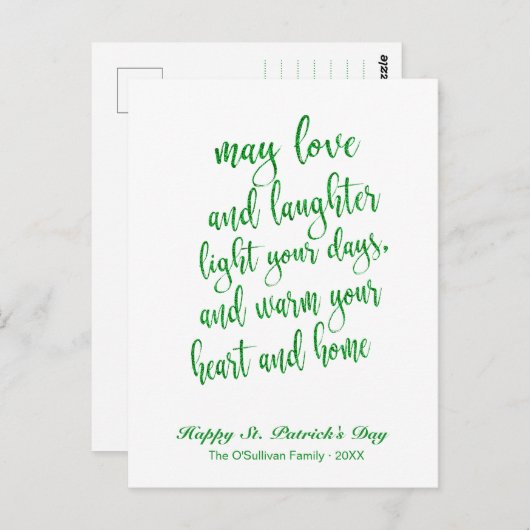 may love
and laughter
light your days,
and warm your
heart and home
Happy St. Patrick's Day
The O'Sullivan Family · 20XX